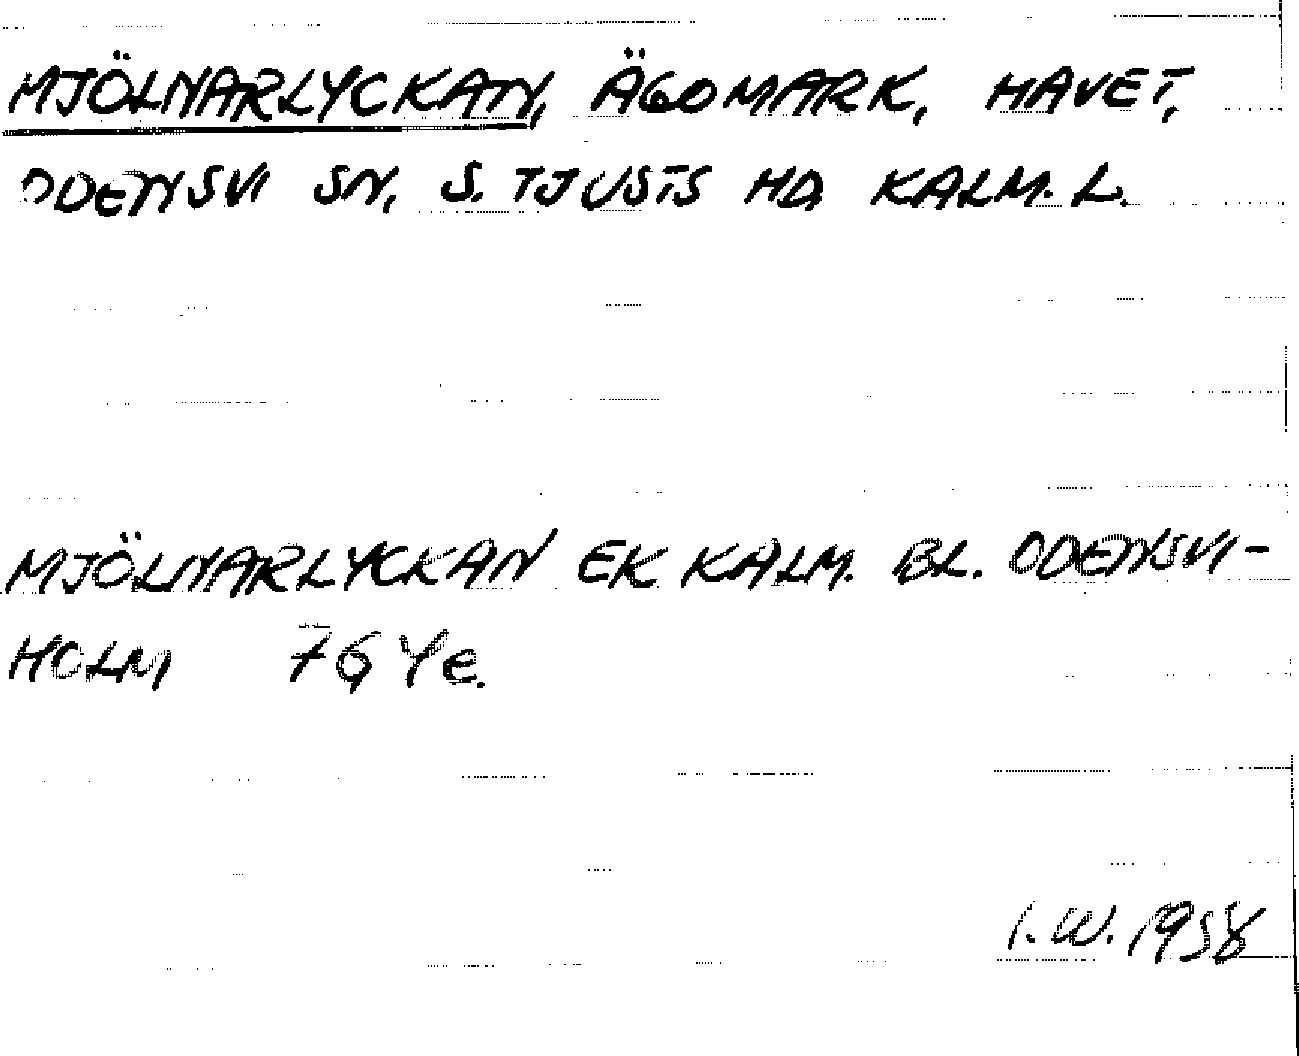 MJÖLNARLYCKAN, ÄGOMARK, HAVET,
ODENSVI SN, S. TJUSTS HD KALM. L.
MJÖLNARLYCKAN EK KALM. BL. ODENSVI-
HOLM 7G Ye.
I.W. 1958